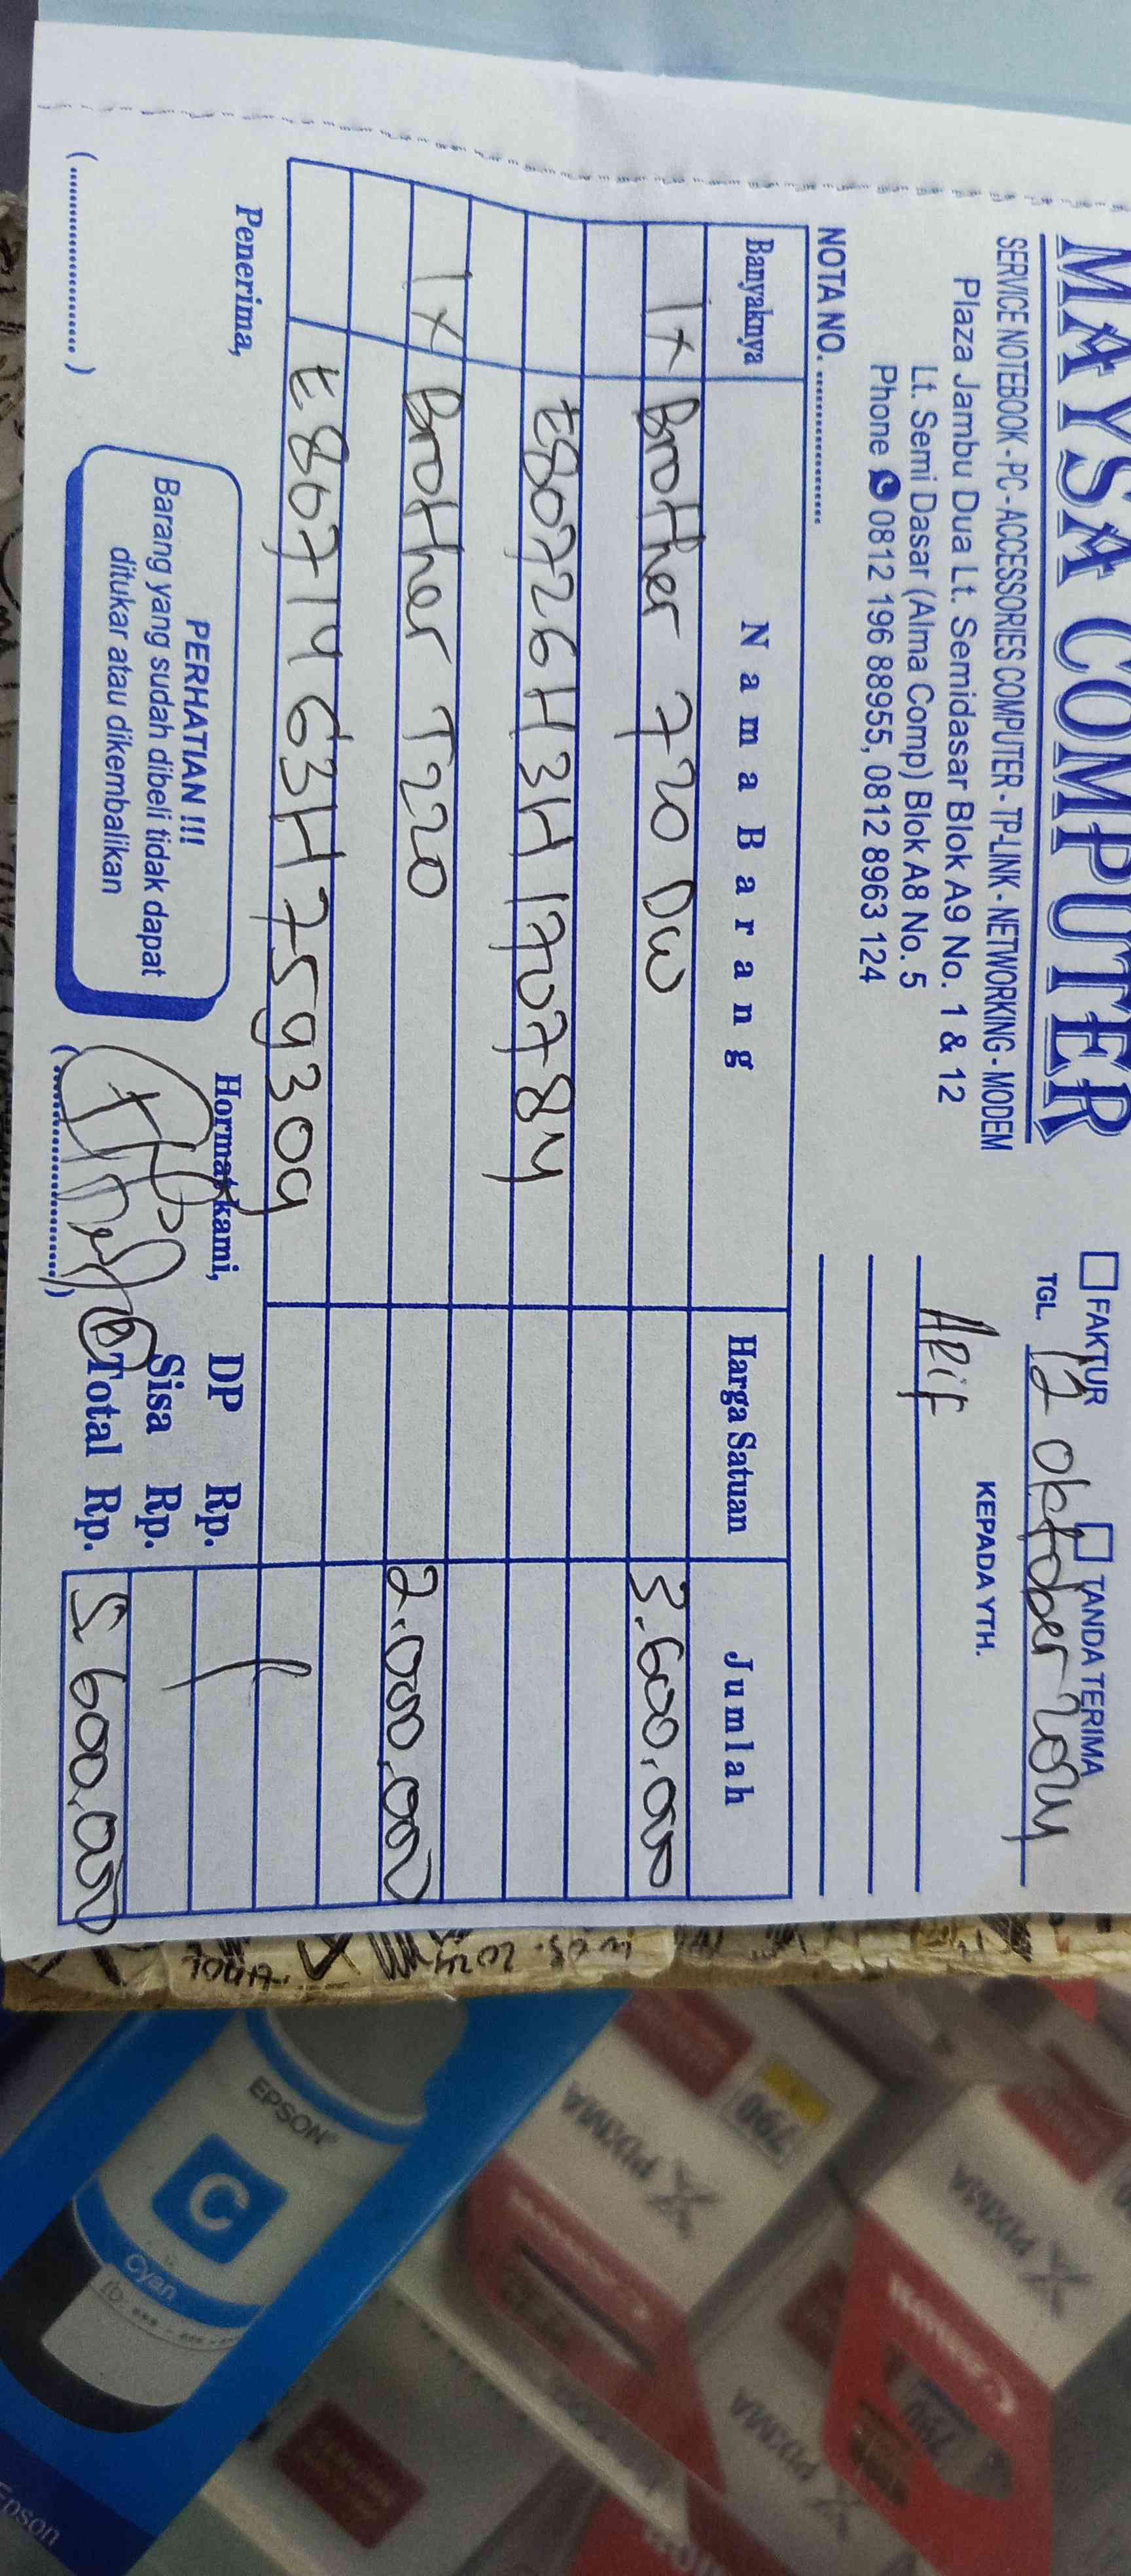 MAYSA COMPUTER
SERVICE NOTEBOOK - PC - ACCESSORIES COMPUTER - TP-LINK - NETWORKING - MODEM
Plaza Jambu Dua Lt. Semidasar Blok A9 No. 1 & 12
Lt. Semi Dasar (Alma Comp) Blok A8 No. 5
Phone 0812 196 88955, 0812 8963 124
FAKTUR TANDA TERIMA
TGL. 12 Oktober 2024
KEPADA YTH.
Arif
NOTA NO. ....................
Banyaknya Nama Barang Harga Satuan Jumlah
1x Brother 720 DW 3.600.000
E80726H3H170784
1x Brother T220 2.000.000
E80714G3H759309
Penerima,
(........................)
PERHATIAN !!!
Barang yang sudah dibeli tidak dapat
ditukar atau dikembalikan
Hormat kami,
(........................)
DP Rp.
Sisa Rp.
Total Rp. 5.600.000
EPSON
C
Cyan
Epson
PIXMA
790
PIXMA
PIXMA
790